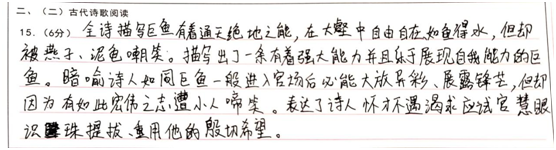 二、(二)古代诗歌阅读
15.(6分) 全诗描写巨鱼有着通天绝地之能,在大壑中自由自在如鱼得水,但却
被燕子、泥色嘲笑。描写出了一条有着强大能力并且乐于展现自我能力的巨
鱼。暗喻诗人如同巨鱼一般进入官场后必能大放异彩、展露锋芒,但却
因为有如此宏伟之志遭小人啼笑。表达了诗人怀才不遇渴求应试官慧眼
识珠提拔、重用他的殷切希望。